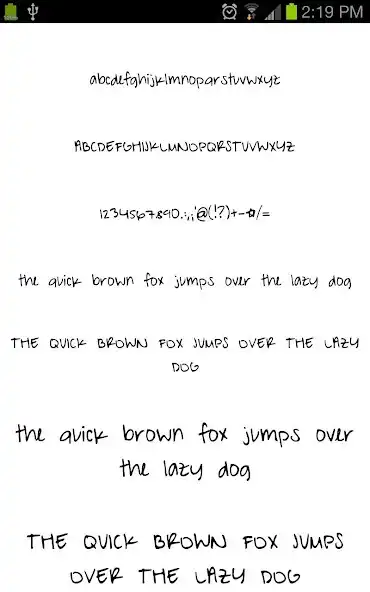 2:19 PM
abcdefghijklmnopqrstuvwxyz
ABCDEFGHIJKLMNOPQRSTUVWXYZ
1234567890.:,;'@(!?)+-☆/=
the quick brown fox jumps over the lazy dog
THE QUICK BROWN FOX JUMPS OVER THE LAZY
DOG
the quick brown fox jumps over
the lazy dog
THE QUICK BROWN FOX JUMPS
OVER THE LAZY DOG